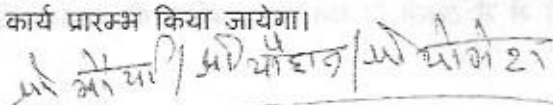 कार्य प्रारम्भ किया जायेगा।
श्री मौर्या / श्री चौहान / श्री योगेश